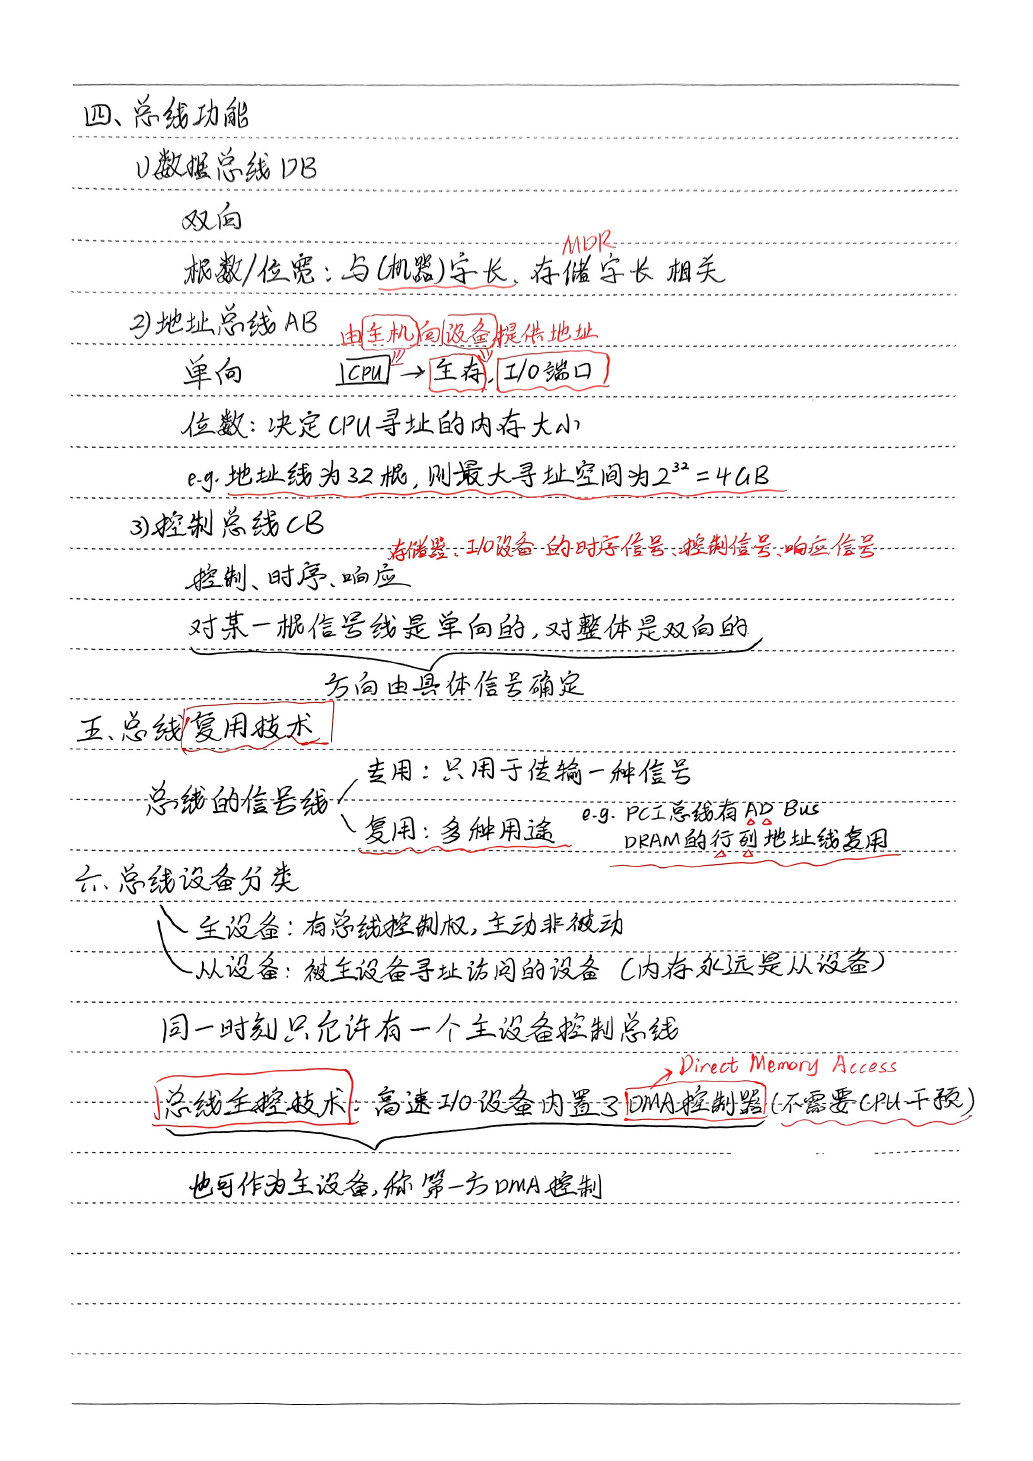 四、总线功能
1)数据总线DB
双向
MDR
根数/位宽：与(机器)字长、存储字长相关
2)地址总线AB 由主机向设备提供地址
单向 CPU → 主存、I/O端口
位数：决定CPU寻址的内存大小
e.g. 地址线为32根，则最大寻址空间为2³²=4GB
3)控制总线CB
存储器、I/O设备的时序信号、控制信号、响应信号
控制、时序、响应
对某一根信号线是单向的，对整体是双向的
方向由具体信号确定
五、总线复用技术
专用：只用于传输一种信号
总线的信号线
e.g. PCI总线有AD Bus
复用：多种用途
DRAM的行列地址线复用
六、总线设备分类
主设备：有总线控制权，主动非被动
从设备：被主设备寻址访问的设备（内存永远是从设备）
同一时刻只允许有一个主设备控制总线
Direct Memory Access
总线主控技术：高速I/O设备内置了DMA控制器（不需要CPU干预）
也可作为主设备，称第一方DMA控制